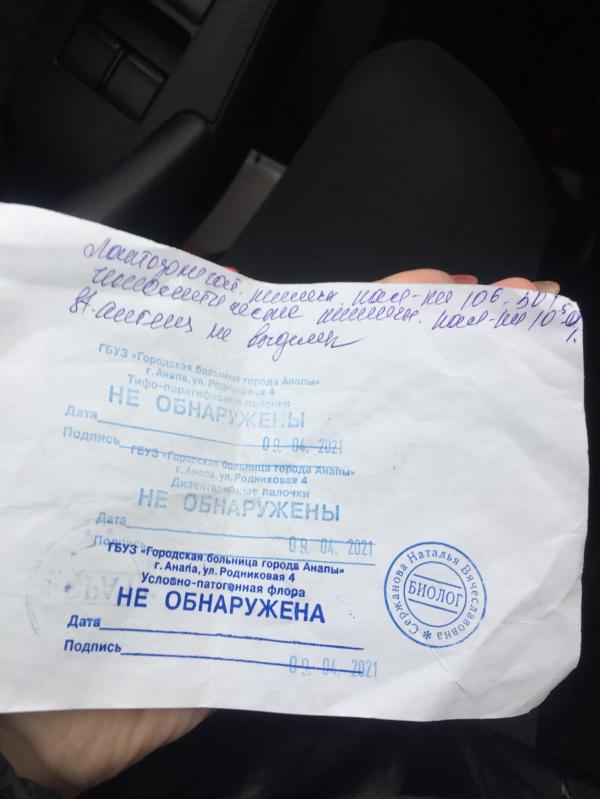 St. aureus не выделен
ГБУЗ «Городская больница города Анапы»
г. Анапа, ул. Родниковая 4
Тифо-паратифозные палочки
НЕ ОБНАРУЖЕНЫ
Дата 09.04.2021
Подпись
ГБУЗ «Городская больница города Анапы»
г. Анапа, ул. Родниковая 4
Дизентерийные палочки
НЕ ОБНАРУЖЕНЫ
Дата 09.04.2021
Подпись
ГБУЗ «Городская больница города Анапы»
г. Анапа, ул. Родниковая 4
Условно-патогенная флора
НЕ ОБНАРУЖЕНА
Дата
Подпись 09.04.2021
Сержанова Наталья Вячеславовна
БИОЛОГ